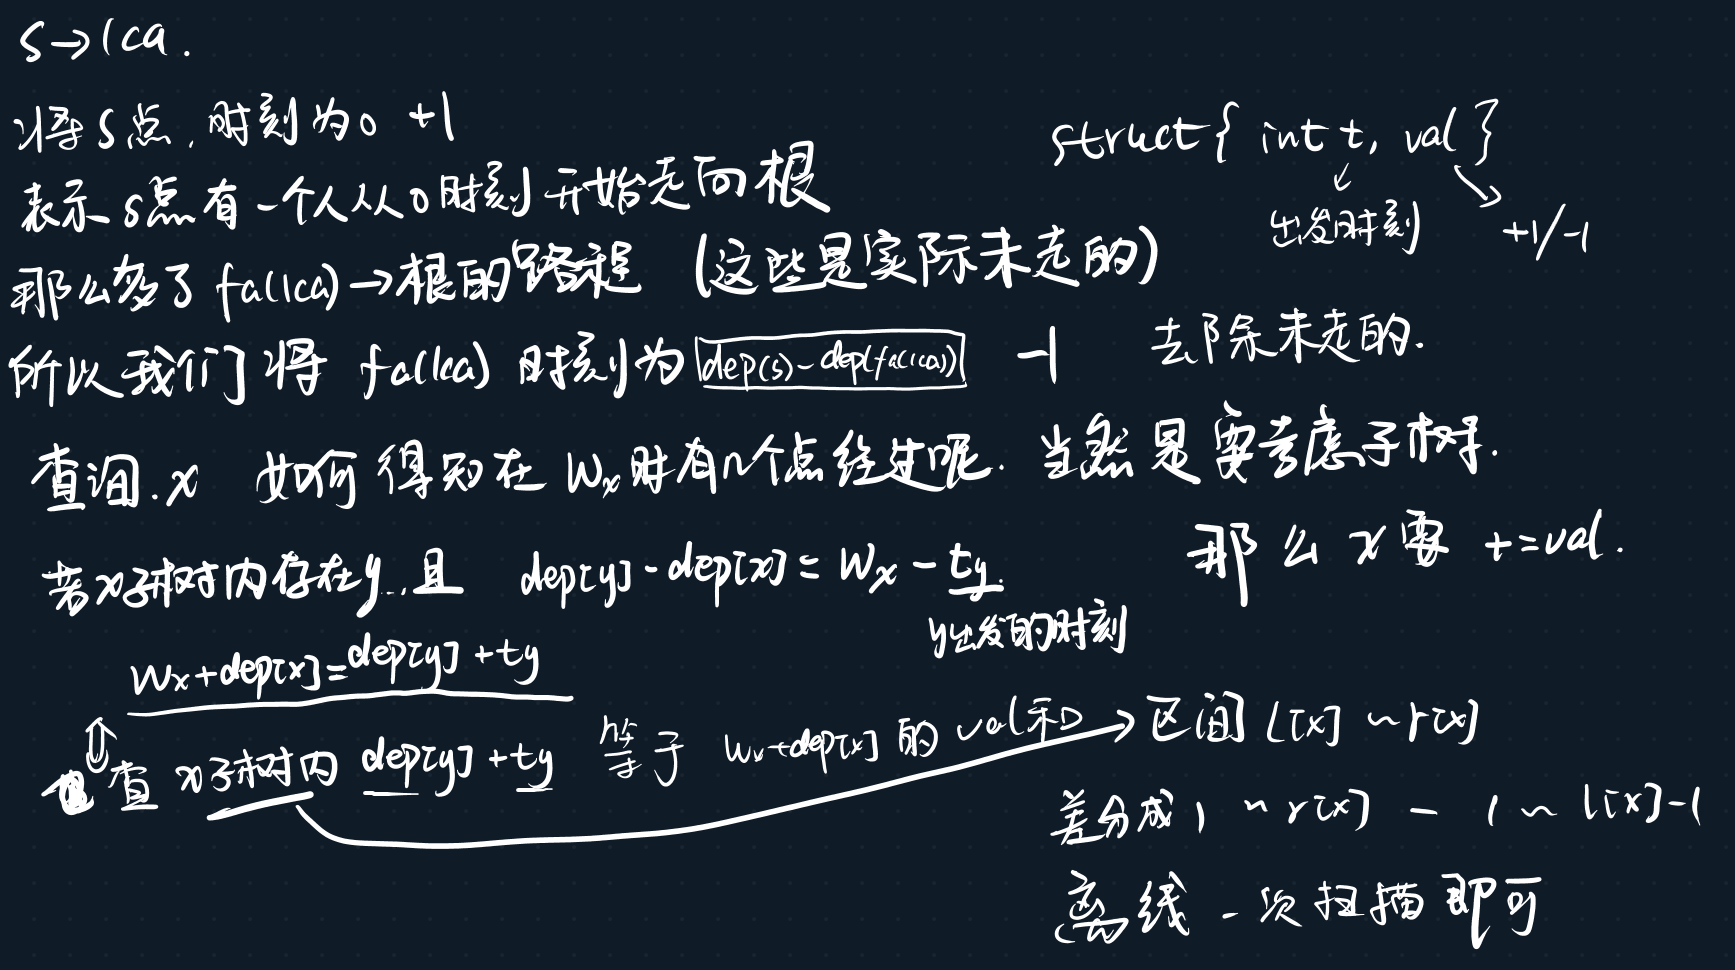 s→lca.
将s点,时刻为0 +1
struct{ int t, val }
表示s点有一个人从0时刻开始走向根
出发时刻 +1/-1
那么多了 fa(lca)→根的路程 (这些是实际未走的)
所以我们将 fa(lca) 时刻为 dep(s)-dep(fa(lca)) -1 去除未走的.
查询.x 如何得知在 Wx时有n个点经过呢. 当然是要考虑子树.
若x子树内存在y,且 dep[y]-dep[x]=Wx-ty. 那么x要 +=val.
y出发的时刻
Wx+dep[x]=dep[y]+ty
⇑
查 x子树内 dep[y]+ty 等于 Wx+dep[x] 的val和→区间 l[x]~r[x]
差分成 1~r[x] - 1~l[x]-1
离线一次扫描即可